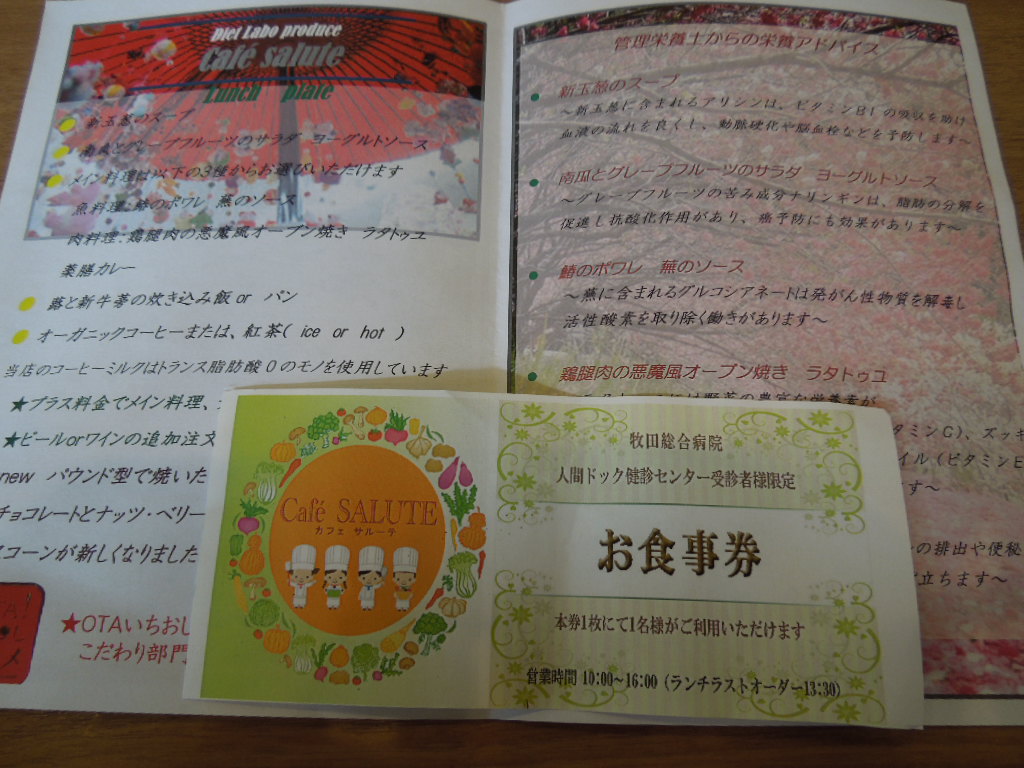 Diet Labo produce
Café salute
Lunch plate
新玉葱のスープ
南瓜とグレープフルーツのサラダ ヨーグルトソース
メイン料理は以下の3種からお選びいただけます
魚料理:鰆のポワレ 蕪のソース
肉料理:鶏腿肉の悪魔風オーブン焼き ラタトゥユ
薬膳カレー
蕗と新牛蒡の炊き込み飯 or パン
オーガニックコーヒーまたは、紅茶( ice or hot )
当店のコーヒーミルクはトランス脂肪酸0のモノを使用しています
★プラス料金でメイン料理、
★ビールorワインの追加注文
new パウンド型で焼いた
チョコレートとナッツ・ベリー
スコーンが新しくなりました
★OTAいちおし
こだわり部門
管理栄養士からの栄養アドバイス
新玉葱のスープ
~新玉葱に含まれるアリシンは、ビタミンB1の吸収を助け
血液の流れを良くし、動脈硬化や脳血栓などを予防します~
南瓜とグレープフルーツのサラダ ヨーグルトソース
~グレープフルーツの苦み成分ナリンギンは、脂肪の分解を
促進し抗酸化作用があり、癌予防にも効果があります~
鰆のポワレ 蕪のソース
~蕪に含まれるグルコシアネートは発がん性物質を解毒し
活性酸素を取り除く働きがあります~
鶏腿肉の悪魔風オーブン焼き ラタトゥユ
には野菜の豊富な栄養素が
タミンC)、ズッキ
イル(ビタミンE
す~
の排出や便秘
立ちます~
Café SALUTE
カフェ サルーテ
牧田総合病院
人間ドック健診センター受診者様限定
お食事券
本券1枚にて1名様がご利用いただけます
営業時間 10:00~16:00 (ランチラストオーダー13:30)